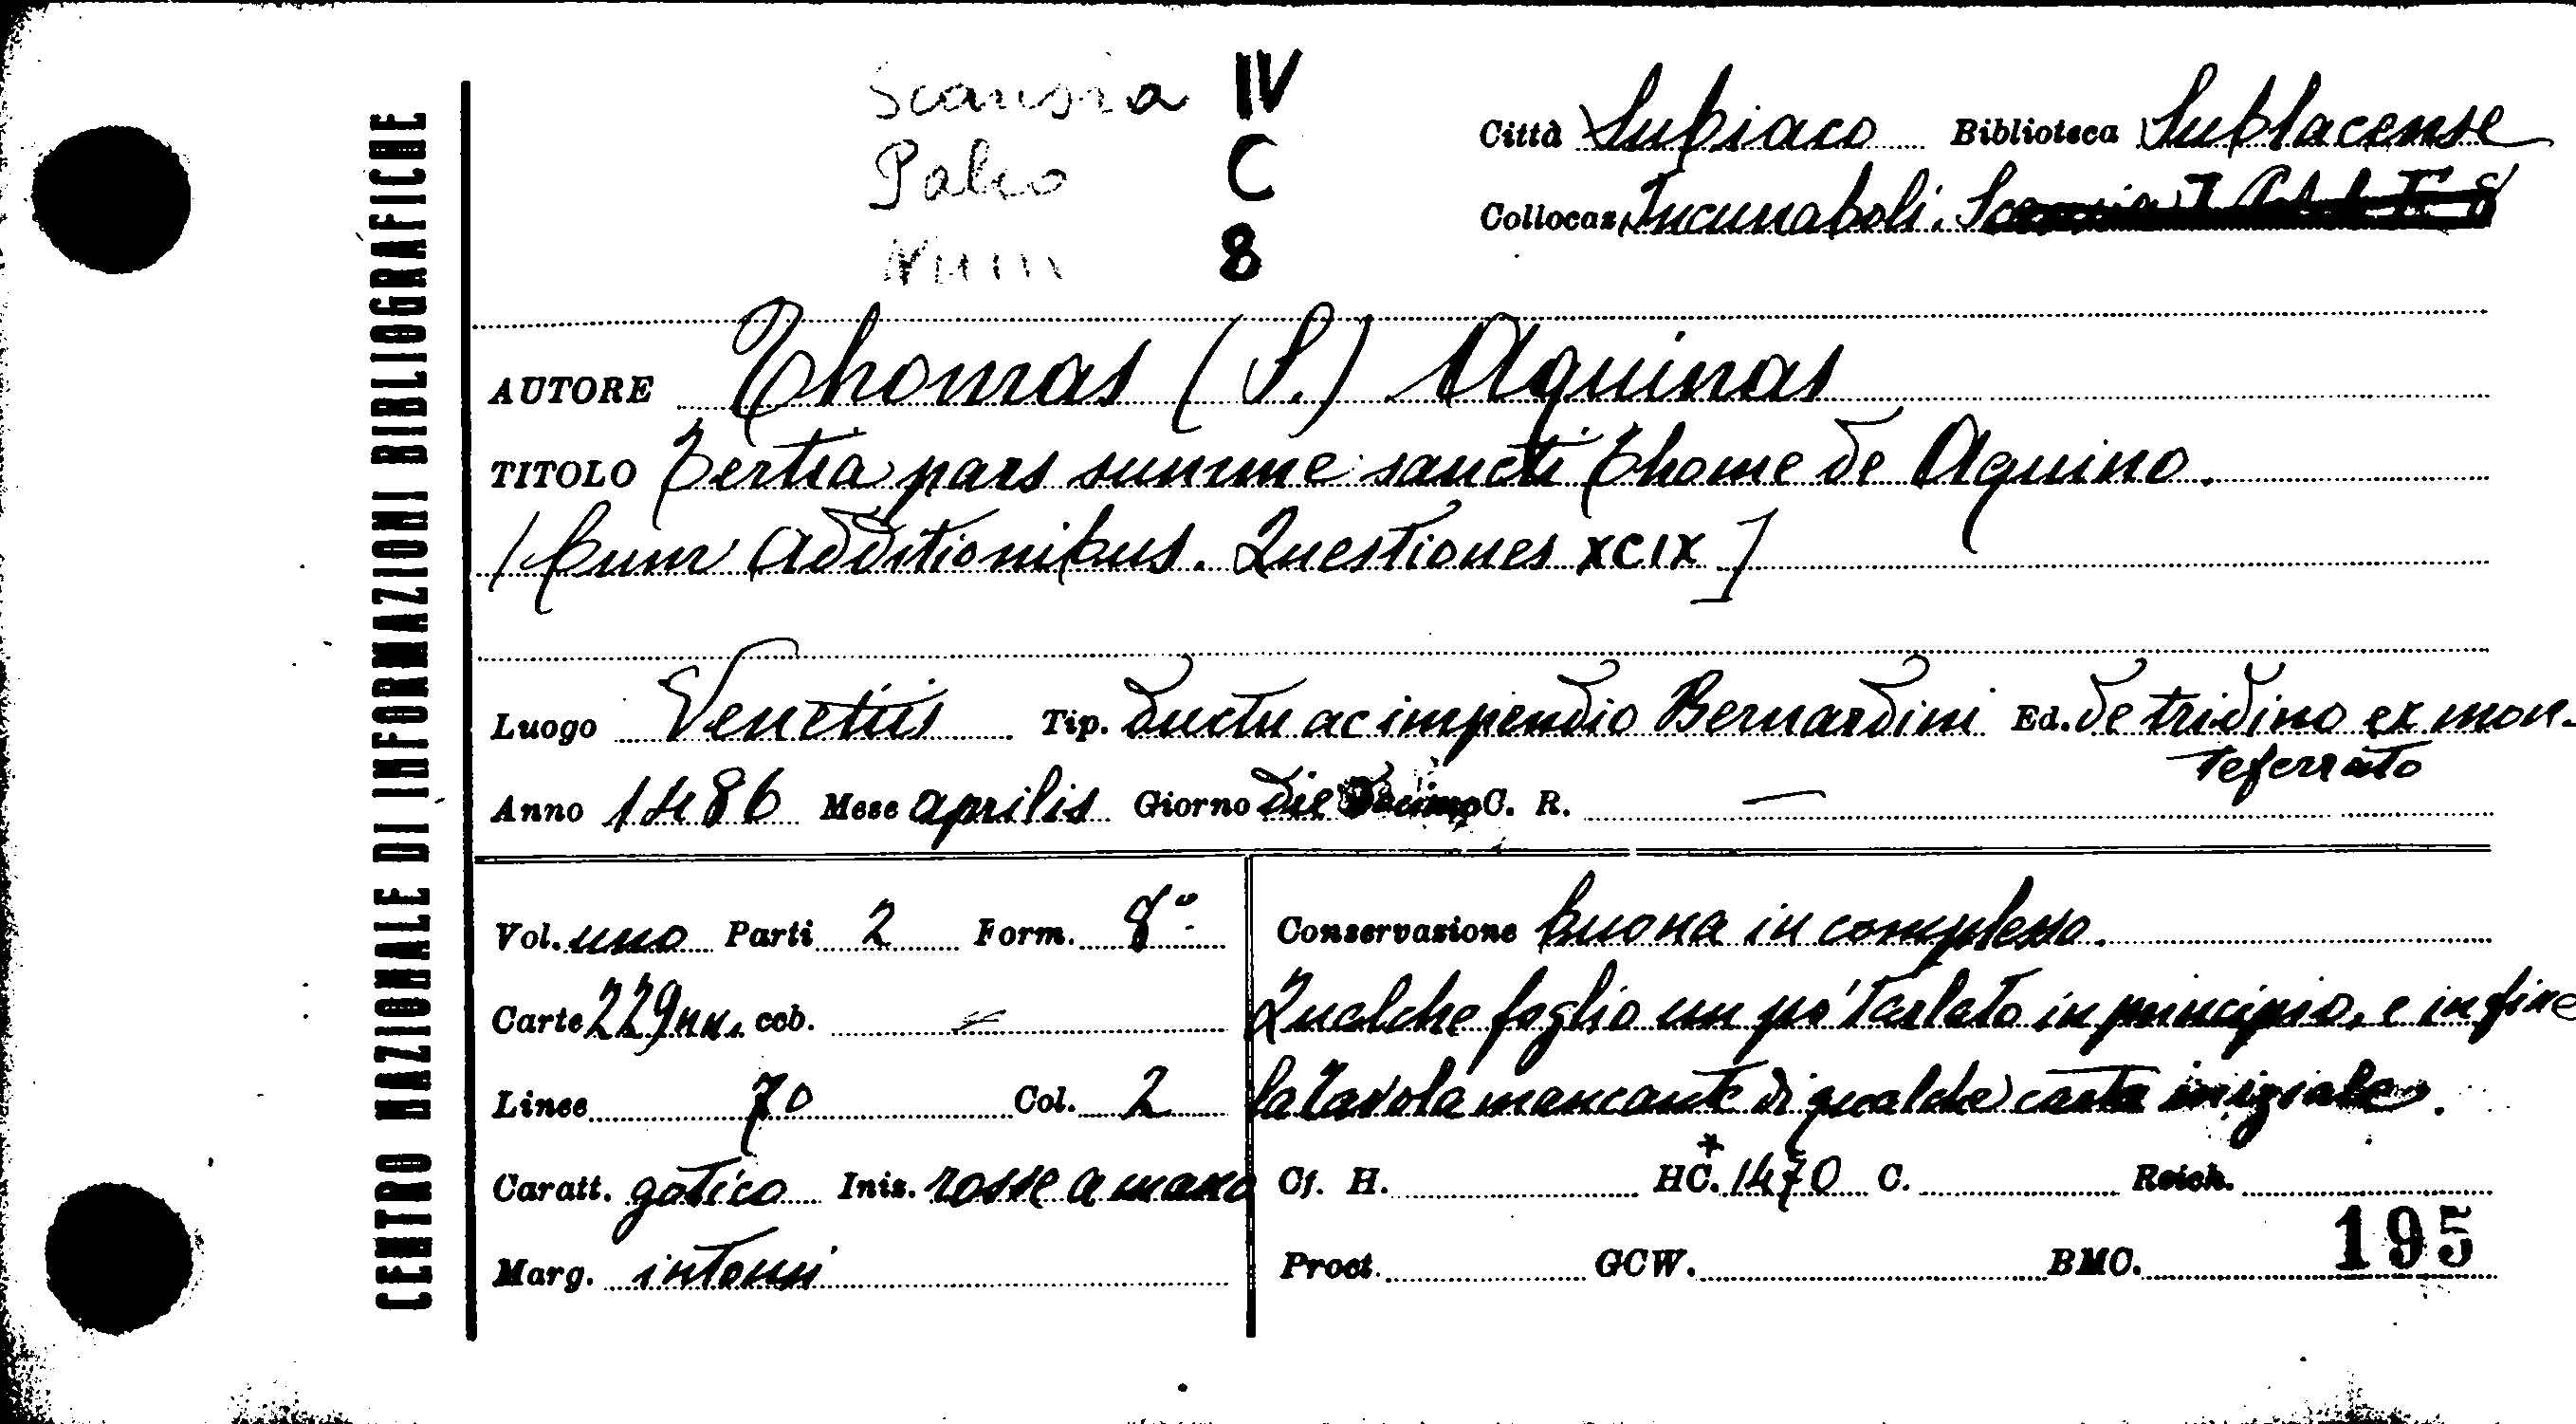 CENTRO NAZIONALE DI INFORMAZIONI BIBLIOGRAFICHE
Scansia IV
Palco C
Num 8
Città Subiaco Biblioteca Sublacense
Collocaz. Incunaboli.
AUTORE Thomas (S.) Aquinas
TITOLO Tertia pars summe sancti Thome de Aquino.
[Cum Additionibus. Questiones XCIX]
Luogo Venetiis Tip. ductu ac impendio Bernardini Ed. de tridino ex mon-
teferrato
Anno 1486 Mese aprilis Giorno die decimo C. R. —
Vol. uno Parti 2 Form. 8°
Carte 229 nn. ccb. —
Linee 70 Col. 2
Caratt. gotico Iniz. rosse a mano
Marg. intonsi
Conservazione buona in complesso.
Qualche foglio un po' tarlato in principio, e in fine
la tavola mancante di qualche carta iniziale.
Cf. H. HC.* 1470 C. Reich.
Proct. GCW. BMC. 195